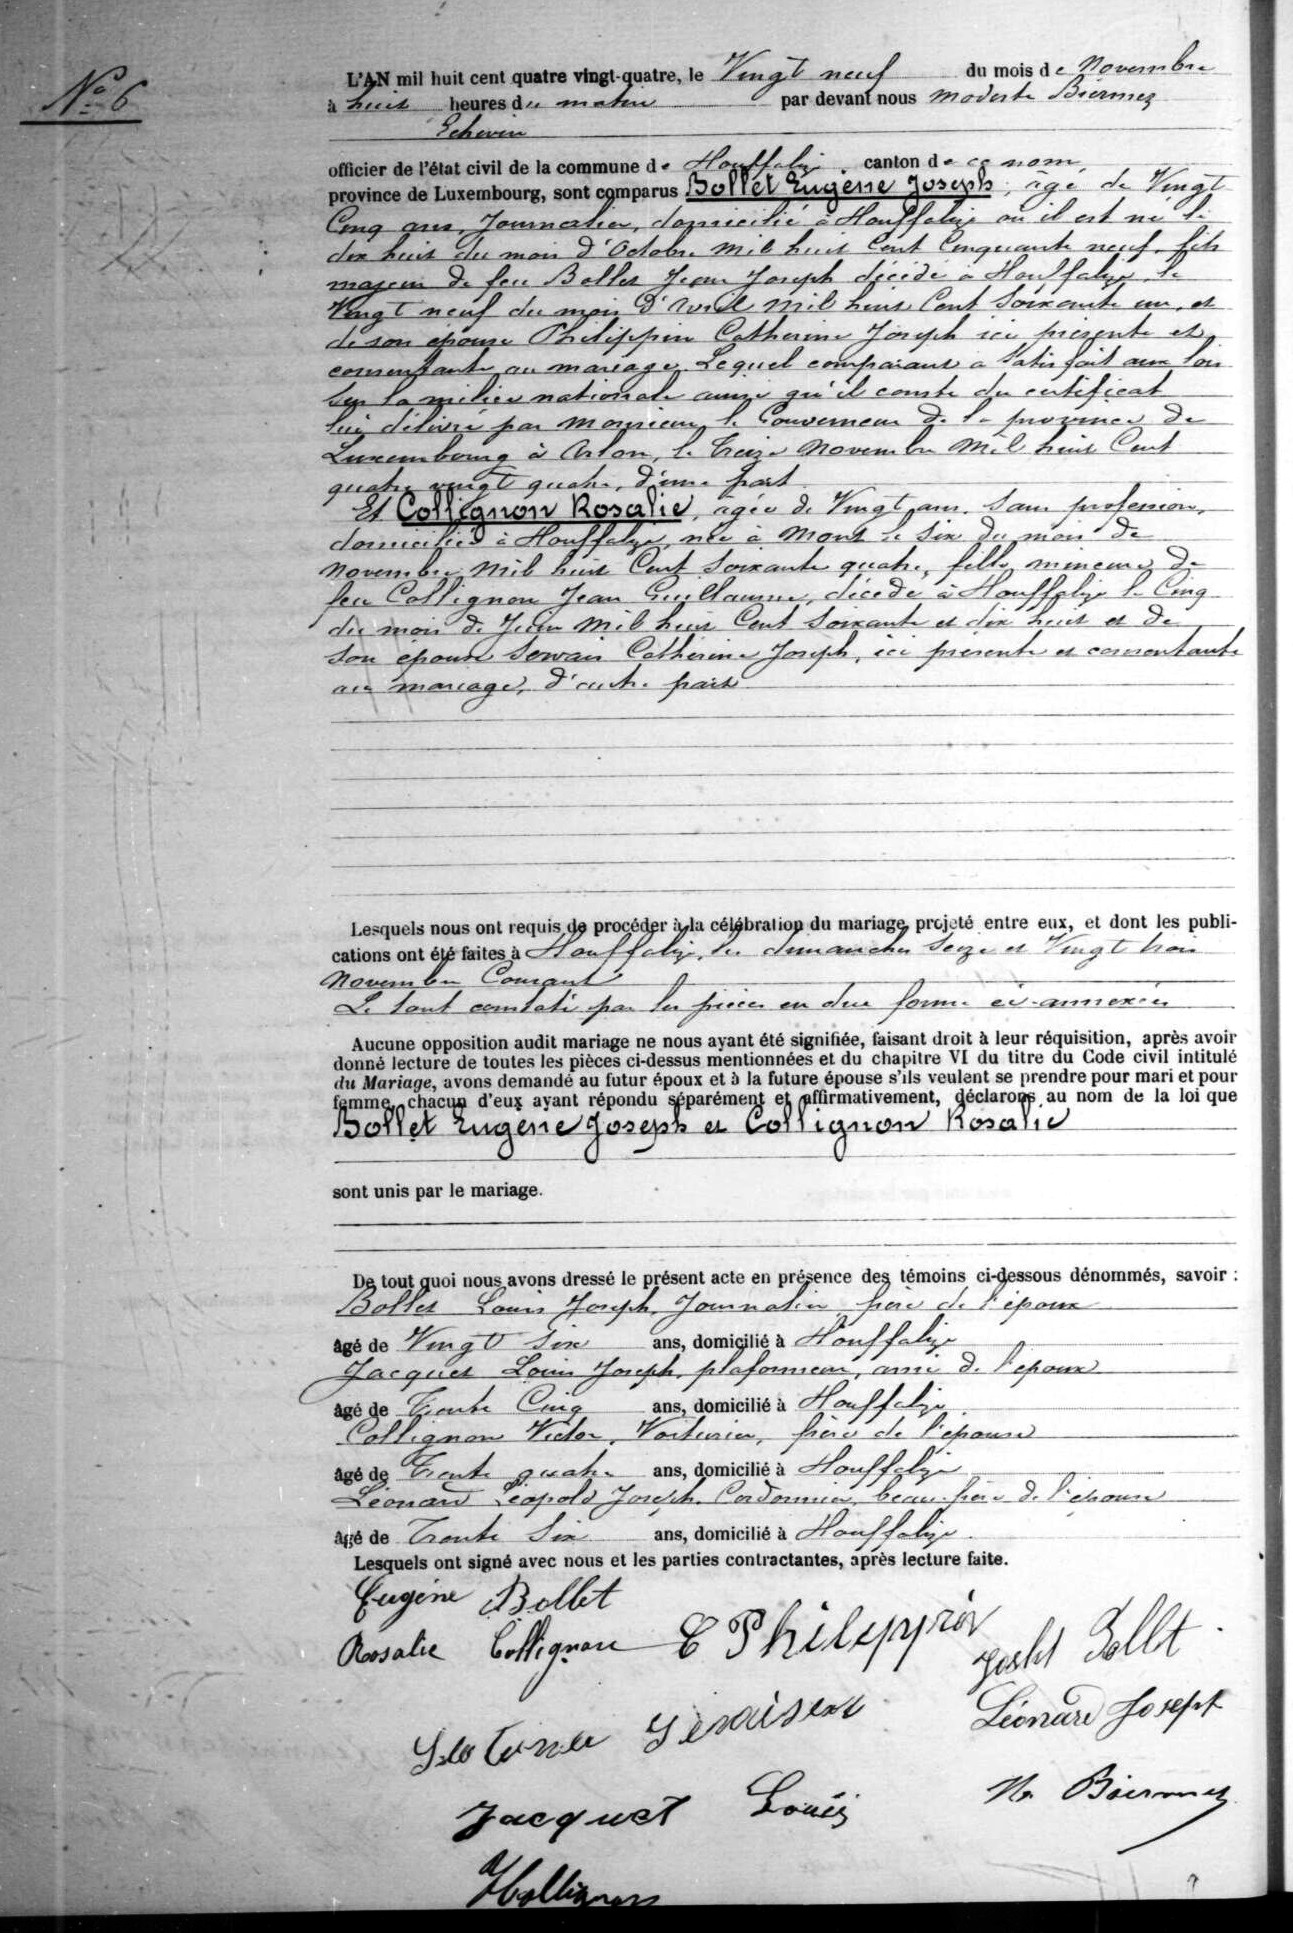 No 6
L'AN mil huit cent quatre vingt-quatre, le Vingt neuf du mois de Novembre
à huit heures du matin par devant nous Modeste Biermez
Echevin
officier de l'état civil de la commune de Houffalize canton de ce nom
province de Luxembourg, sont comparus Bollet Eugène Joseph, âgé de Vingt
Cinq ans, Journalier, domicilié à Houffalize où il est né le
dix huit du mois d'Octobre mil huit Cent Cinquante neuf, fils
majeur de feu Bollet Jean Joseph décédé à Houffalize le
Vingt neuf du mois d'Avril mil huit Cent Soixante un, et
de son épouse Philippin Catherine Joseph ici présente et
consentante au mariage. Lequel comparant a Satisfait aux lois
sur la milice nationale ainsi qu'il conste du certificat
lui délivré par Monsieur le Gouverneur de la province de
Luxembourg à Arlon, le treize Novembre Mil huit Cent
quatre vingt quatre, d'une part.
Et Collignon Rosalie, âgée de Vingt ans, sans profession,
domiciliée à Houffalize, née à Mont le Six du mois de
Novembre Mil huit Cent Soixante quatre, fille mineure de
feu Collignon Jean Guillaume, décédé à Houffalize le Cinq
du mois de Juin Mil huit Cent Soixante et dix huit et de
son épouse Servais Catherine Joseph, ici présente et consentante
au mariage, d'autre part
Lesquels nous ont requis de procéder à la célébration du mariage projeté entre eux, et dont les publi-
cations ont été faites à Houffalize, les dimanches Seize et Vingt trois
Novembre Courant
Le tout constaté par les pièces en due forme ci-annexées
Aucune opposition audit mariage ne nous ayant été signifiée, faisant droit à leur réquisition, après avoir
donné lecture de toutes les pièces ci-dessus mentionnées et du chapitre VI du titre du Code civil intitulé
du Mariage, avons demandé au futur époux et à la future épouse s'ils veulent se prendre pour mari et pour
femme, chacun d'eux ayant répondu séparément et affirmativement, déclarons au nom de la loi que
Bollet Eugène Joseph et Collignon Rosalie
sont unis par le mariage.
De tout quoi nous avons dressé le présent acte en présence des témoins ci-dessous dénommés, savoir :
Bollet Louis Joseph, Journalier, frère de l'époux
âgé de Vingt Six ans, domicilié à Houffalize
Jacquet Louis Joseph, plafonneur, ami de l'époux
âgé de Trente Cinq ans, domicilié à Houffalize
Collignon Victor, Voiturier, frère de l'épouse
âgé de Trente quatre ans, domicilié à Houffalize
Léonard Léopold Joseph, Cordonnier, beau-frère de l'épouse
âgé de Trente Six ans, domicilié à Houffalize
Lesquels ont signé avec nous et les parties contractantes, après lecture faite.
Eugène Bollet
Rosalie Collignon C Philippin
Bollet
Léonard Joseph
Jacquet Louis
M. Biermez